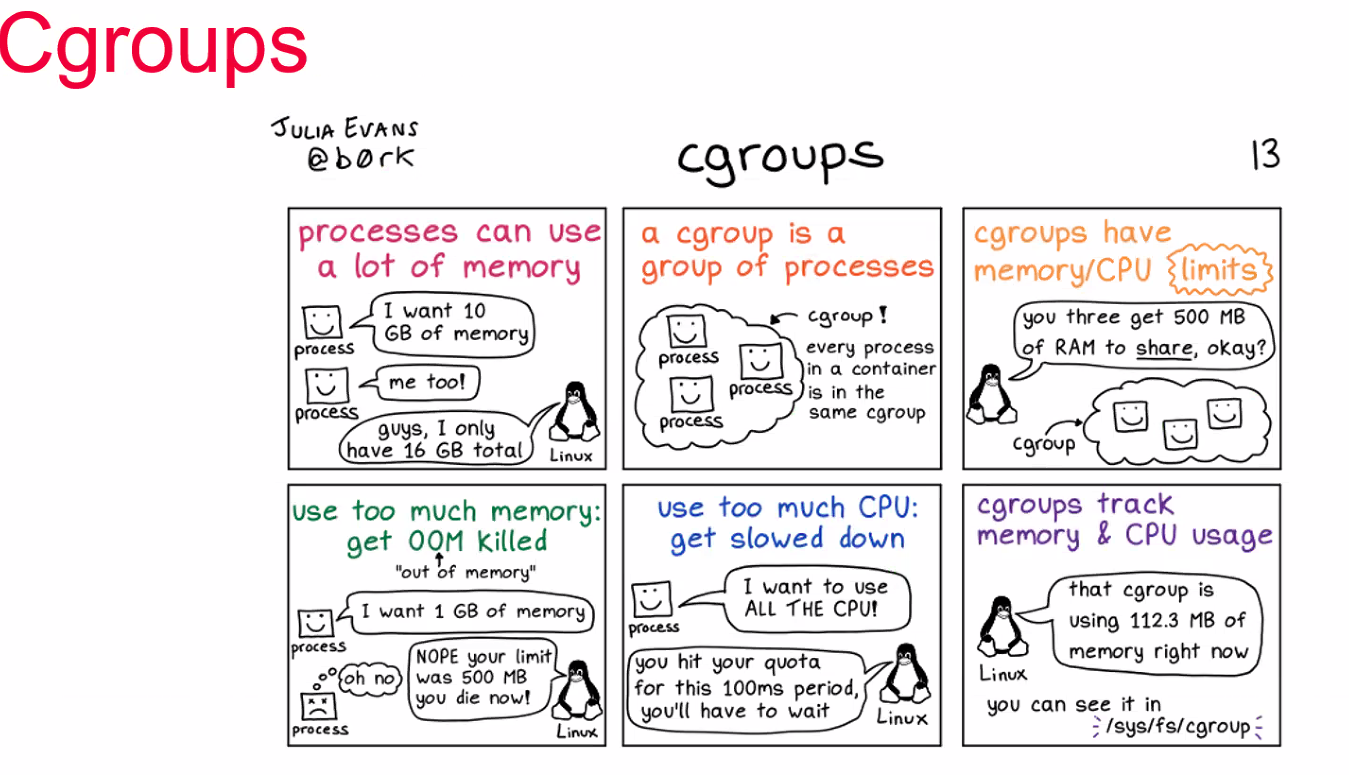 Cgroups
JULIA EVANS
@b0rk
cgroups
13
processes can use
a lot of memory
I want 10
GB of memory
process
me too!
process
guys, I only
have 16 GB total
Linux
a cgroup is a
group of processes
cgroup!
process
process
process
every process
in a container
is in the
same cgroup
cgroups have
memory/CPU limits
you three get 500 MB
of RAM to share, okay?
cgroup
use too much memory:
get OOM killed
"out of memory"
I want 1 GB of memory
process
NOPE your limit
was 500 MB
you die now!
oh no
process
Linux
use too much CPU:
get slowed down
I want to use
ALL THE CPU!
process
you hit your quota
for this 100ms period,
you'll have to wait
Linux
cgroups track
memory & CPU usage
that cgroup is
using 112.3 MB of
memory right now
Linux
you can see it in
/sys/fs/cgroup